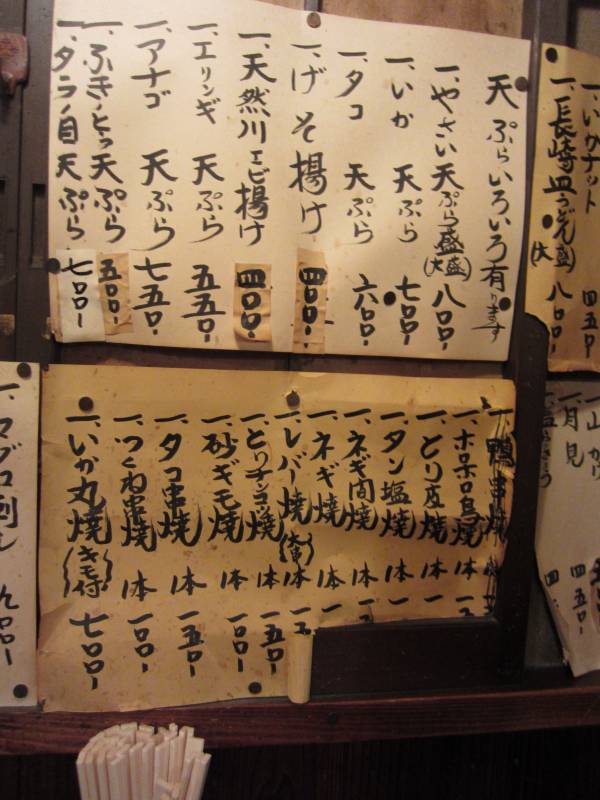 天ぷらいろいろ有ります
一、やさい天ぷら盛(大盛) 八〇〇-
一、いか 天ぷら 七〇〇-
一、タコ 天ぷら 六〇〇-
一、げそ揚げ 四〇〇-
一、天然川エビ揚げ 四〇〇-
一、エリンギ 天ぷら 五五〇-
一、アナゴ 天ぷら 七五〇-
一、ふきのとう 天ぷら 五〇〇-
一、タラノ目 天ぷら 七〇〇-
一、いかナット 四五〇-
一、長崎皿うどん(大盛) 八〇〇-
一、鴨串焼
一、ホロホロ鳥焼 一本
一、とり皮焼 一本
一、タン塩焼 一本
一、ネギ間焼 一本
一、ネギ焼 一本
一、レバー焼 一本
一、とりナンコツ焼 一本 一五〇-
一、砂ギモ焼 一本 一〇〇-
一、タコ串焼 一本 一五〇-
一、つくね串焼 一本 一〇〇-
一、いか丸焼(キモ付) 七〇〇-
一、山かけ
一、月見 四五〇-
一、マグロ刺し 九〇〇-